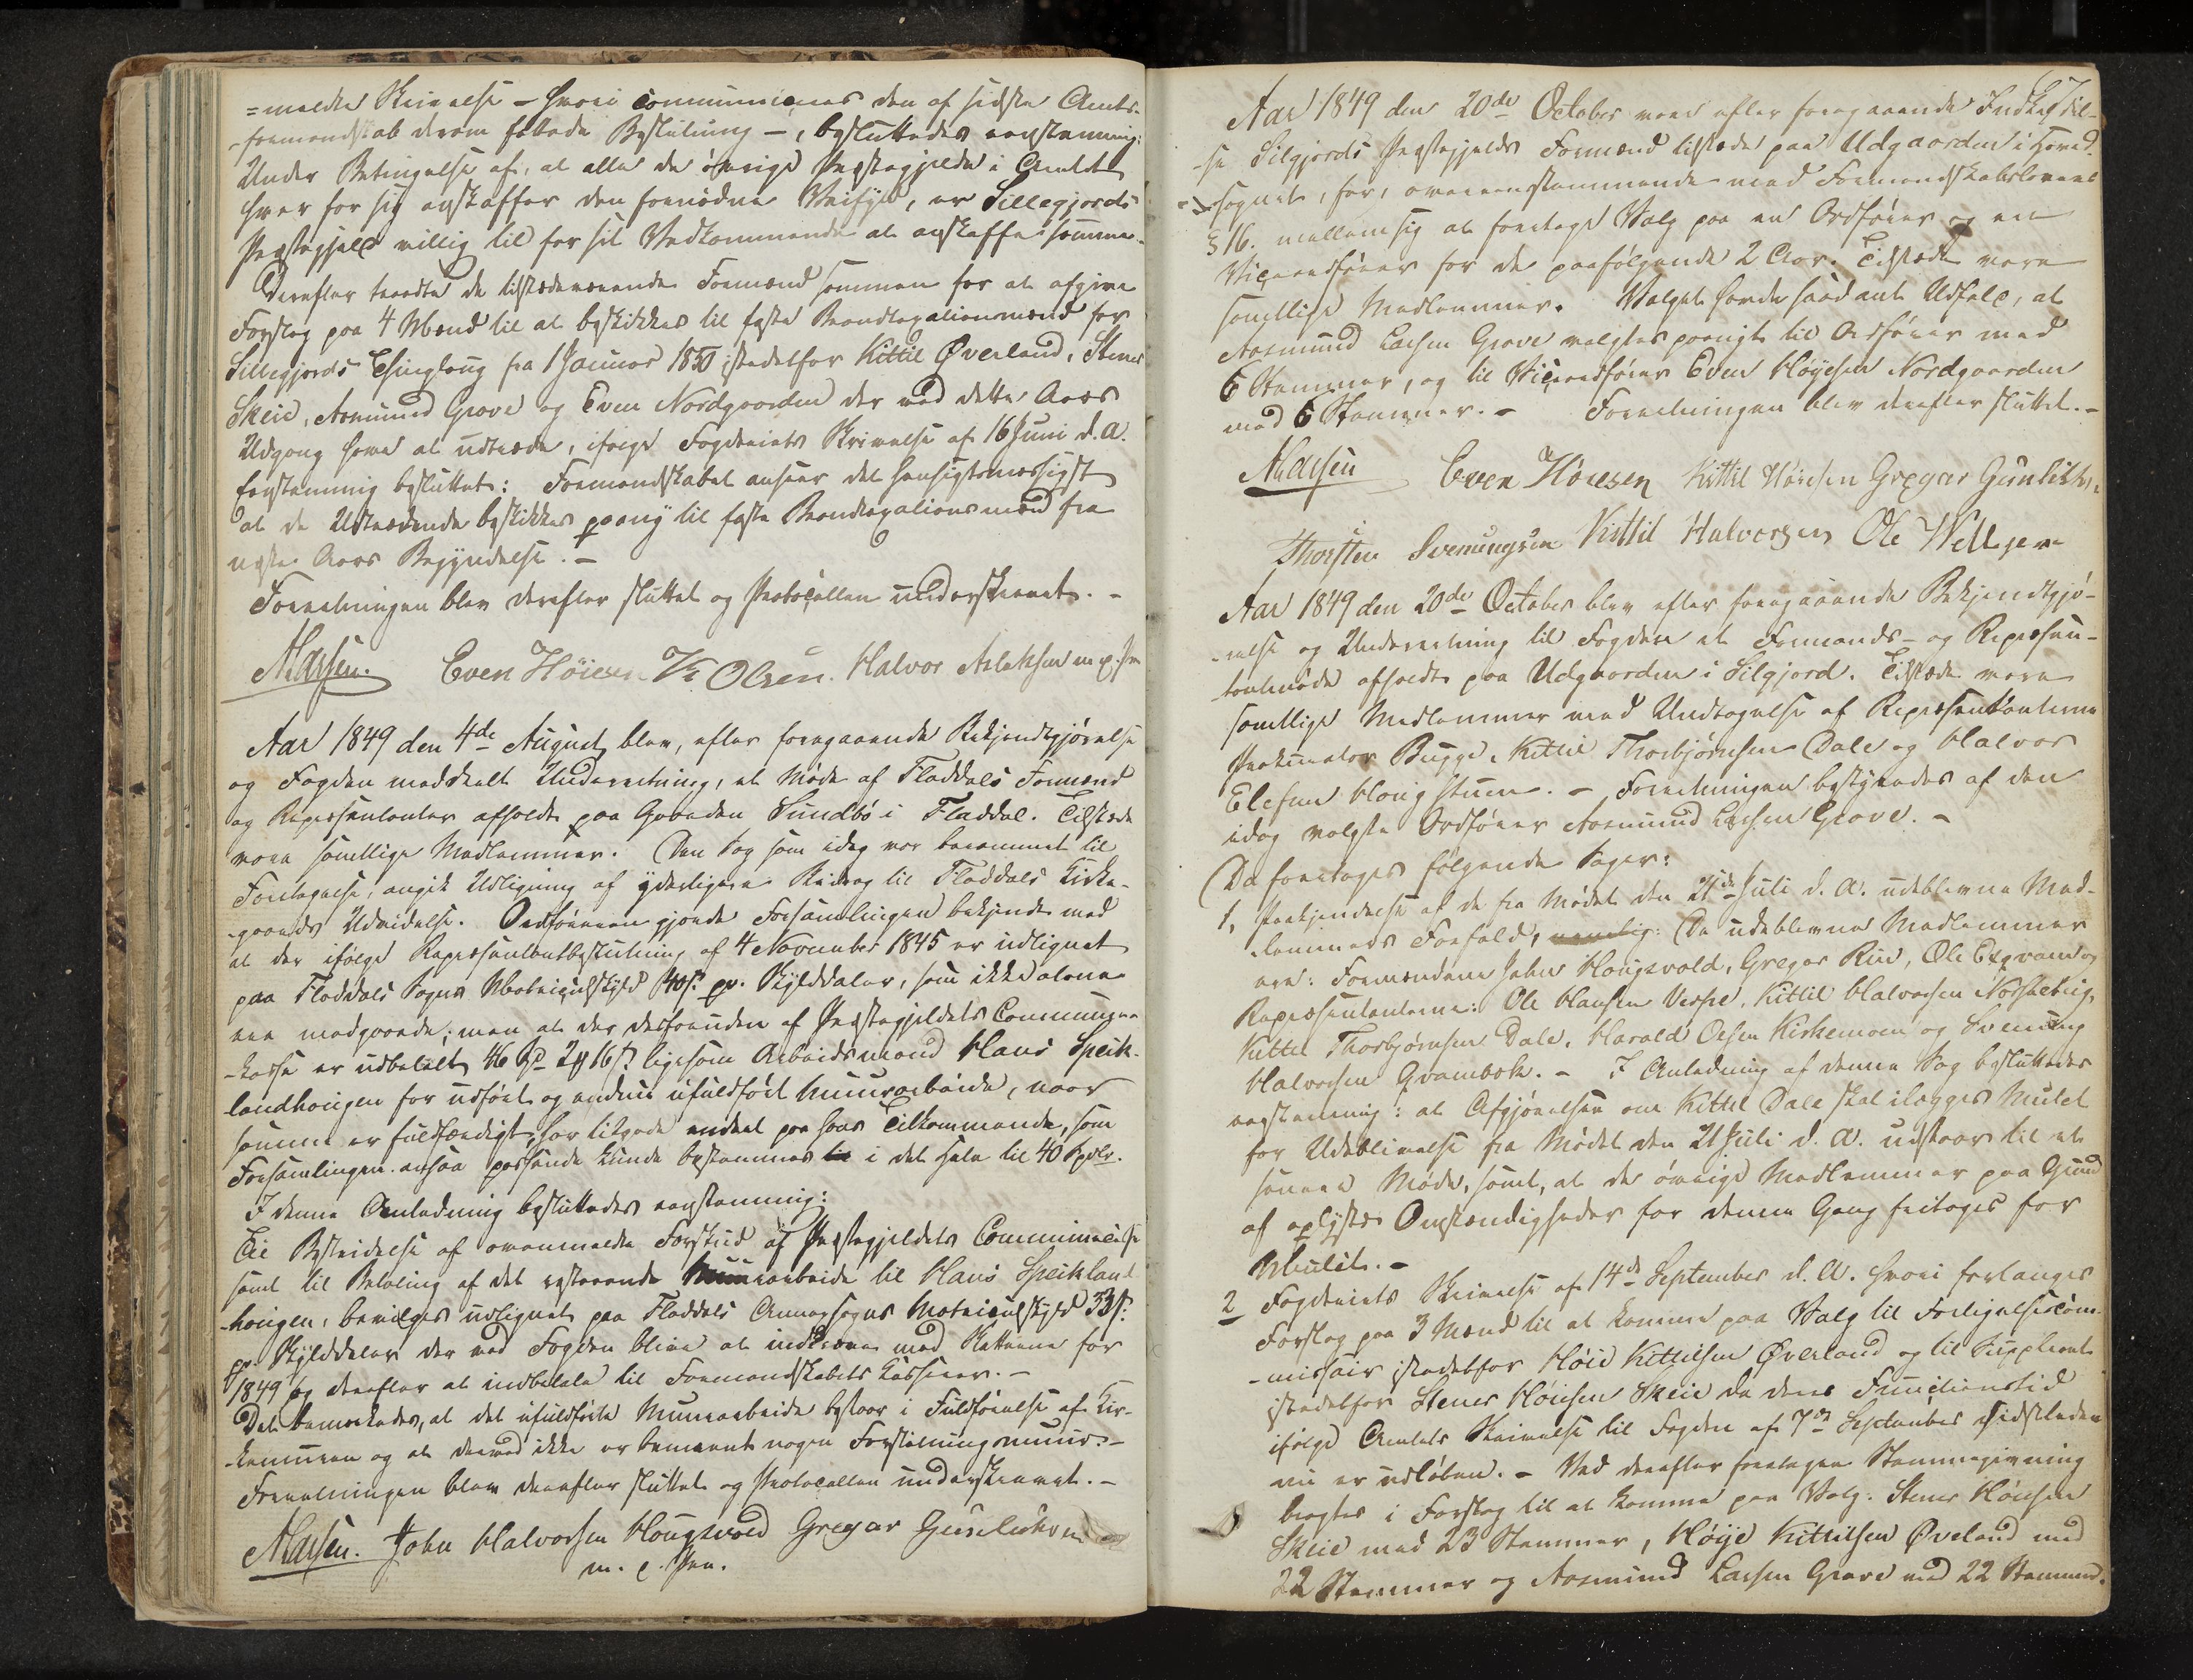 =meldte Skrivelse – hvori communiceres den af sidste Amts-
formandskab derom fattede Beslutning –, besluttedes eenstemmig:
Under Betingelse af, at alle de øvrige Præstegjelde i Amtet
hver for sig anskaffer den fornødne Veifyld, er Sillegjords
Præstegjeld villig til for sit Vedkommende at anskaffe samme.
Derefter traadte de tilstedeværende Formænd sammen for at afgive
Forslag paa 4 Mænd til at beskikkes til faste Brandtaxationsmænd for
Sillegjords Thinglaug fra 1 Januar 1850 istedetfor Kittil Øverland, Stener
Skeie, Aasmund Grave og Even Nordgaarden der ved dette Aars
Udgang have at udtræde, ifølge Fogderiets Skrivelse af 16 Juni d. A.
Eenstemmig besluttet: Formandskabet anseer det hensigtsmæssigst
at de Udtrædende beskikkes paany til faste Brandtaxationsmænd fra
næste Aars Begyndelse. –
Forretningen blev derefter sluttet og Protocollen underskrevet. –
ALarsen. Even Høiesen K Olsen. Halvor Aslaksen m. p. Pen
Aar 1849 den 4de August blev, efter foregaaende Bekjendtgjørelse
og Fogden meddeelt Underretning, et Møde af Fladdals Formænd
og Repræsentanter afholdt paa Gaarden Sundbø i Fladdal. Tilstede
vare samtlige Medlemmer. Den Sag som idag var berammet til
Foretagelse, angik Udligning af yderligere Bidrag til Fladdals Kirke-
-gaards Udvidelse. Ordføreren gjorde Forsamlingen bekjendt med
at der ifølge Repræsentantbeslutning af 4 November 1845 er udlignet
paa Fladdals Sogns Matriculskyld 40 s. pr. Skylddaler, som ikke alene
ere medgaaede; men at der desforuden af Præstegjeldets Commune-
-kasse er udbetalt 46 Spd 2 16 s. ligesom Arbeidsmand Hans Speik-
landhougen for udført og endnu ufuldført Muurarbeide, naar
samme er fuldfærdigt, har tilgode endeel paa hans Tilkommende, som
Forsamlingen ansaa passende kunde bestemmes i det Hele til 40 Spdlr.
I denne Anledning besluttedes eenstemmig:
Til Bestridelse af ovenmeldte Forskud af Præstegjeldets Communecasse
samt til Betaling af det resterende Muurarbeide til Hans Speikland
hougen, bevilges udlignet paa Fladdals Annexsogns Matriculskyld 33 s.
pr. Skylddaler der ved Fogden blive at indkræve med Skatterne for
1849 og derefter at indbetale til Formandskabets Kasserer. –
Det bemærkedes, at det ufuldførte Muurarbeide bestaar i Fuldførelse af Kir-
-kemuren og at derved ikke er bemeent nogen Forstøtningsmuur. –
Forretningen blev derefter sluttet og Protocollen underskrevet. –
ALarsen. John Halvorsen Hougsvold Gregar Gunliksen
m. p. Pen.
67
Aar 1849 den 20de October vare efter foregaaende Indkaldel-
-se Silgjords Præstegjelds Formænd tilstede paa Udgaarden i Hoved-
-sognet, for, overeenstemmende med Formandskabslovens
§ 16. mellem sig at foretage Valg paa en Ordfører og en
Viceordfører for de paafølgende 2 Aar. Tilstede vare
samtlige Medlemmer. Valget havde saadant Udfald, at
Aasmund Larsen Grave valgtes paanyt til Ordfører med
6 Stemmer, og til Viceordfører Even Høyesen Nordgaarden
med 6 Stemmer. – Forretningen blev derefter sluttet. –
ALarsen Even Høiesen Kittil Høiesen Gregar Gunliksen
Thorsten Svenungsen Kittil Halvorsen Ole
Aar 1849 den 20de October blev efter foregaaende Bekjendtgjø-
-relse og Underretning til Fogden et Formands- og Repræsen-
tantmøde afholdt paa Udgaarden i Silgjord. Tilstede vare
samtlige Medlemmer med Undtagelse af Repræsentanterne
Prokurator Bugge, Kittil Thorbjørnsen Dale og Halvor
Olesen Hougstuen. – Forretningen bestyredes af den
idag valgte Ordfører Aasmund Larsen Grave. –
Da foretoges følgende Sager:
1, Paakjendelse af de fra Mødet den 21de Juli d. A. udeblevne Med-
lemmers Forfald, nemlig: De udeblevne Medlemmer
ere: Formændene John Hougsvold, Gregar Rui, Ole og
Repræsentanterne: Ole Hansen Versje, Kittil Halvorsen Norsk
Kittil Thorbjørnsen Dale, Harald Olsen Kirkemoen og Svenung
Halvorsen Qvambek. – I Anledning af denne Sag besluttedes
eenstemmig: at Afgjørelsen om Kittil Dale skal ilægges Mulct
for Udeblivelse fra Mødet den 21 Juli d. A. udstaar til et
senere Møde, samt, at de øvrige Medlemmer paa Grund
af oplyste Omstændigheder for denne Gang fritages for
Mulct. –
2 Fogderiets Skrivelse af 14de September d. A. hvori forlanges
Forslag paa 3 Mænd til at komme paa Valg til Forligelsescom-
-missair istedetfor Høie Kittilsen Øverland og til Suppleant
istedetfor Stener Høiesen Skeie da deres Functionstid
ifølge Amtets Skrivelse til Fogden af 7de September sidstleden
nu er udløben. – Ved derefter foretagen Stemmegivning
bragtes i Forslag til at komme paa Valg: Stener Høiesen
Skeie med 23 Stemmer, Høije Kittilsen Øveland med
22 Stemmer og Aasmund Larsen Grave med 22 Stemmer.